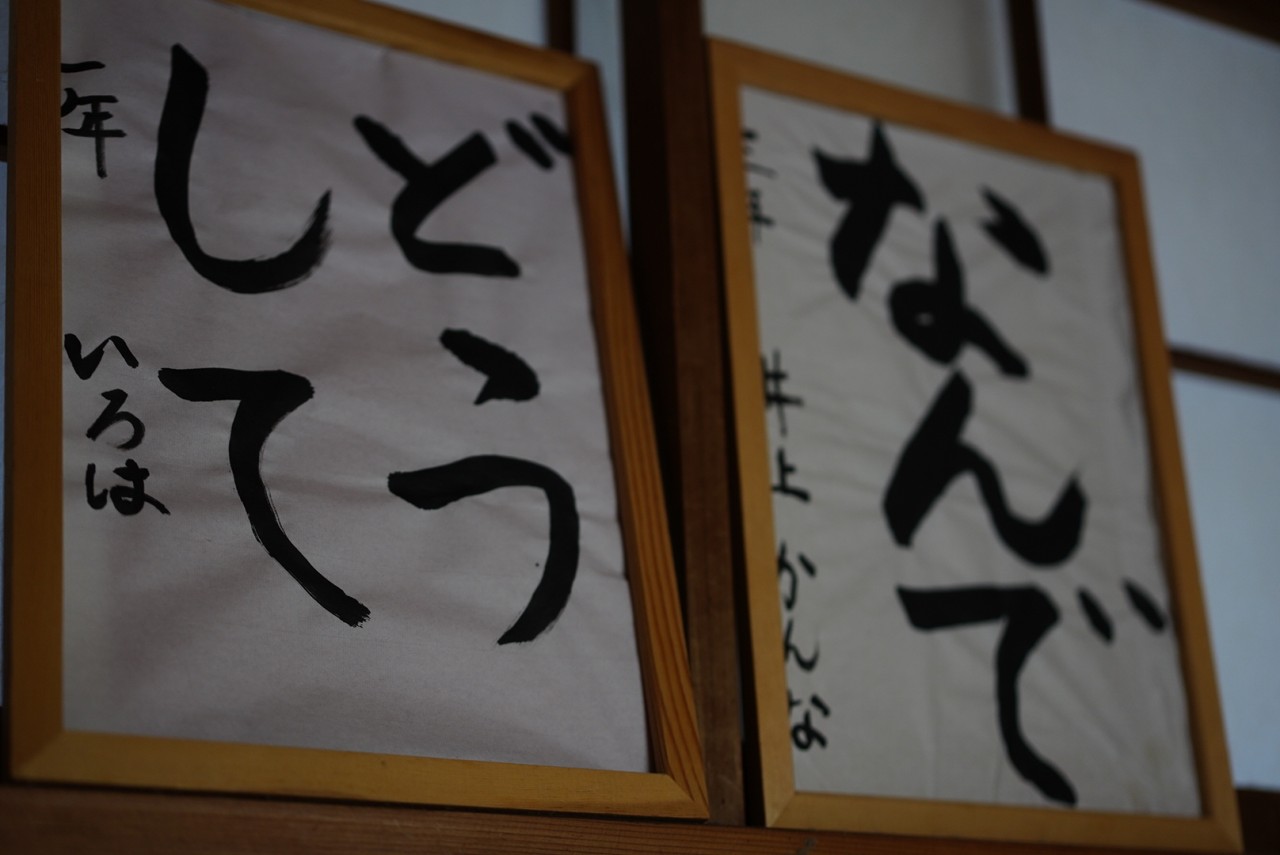 なんで
三年 井上 かんな
どう
して
一年 いろは